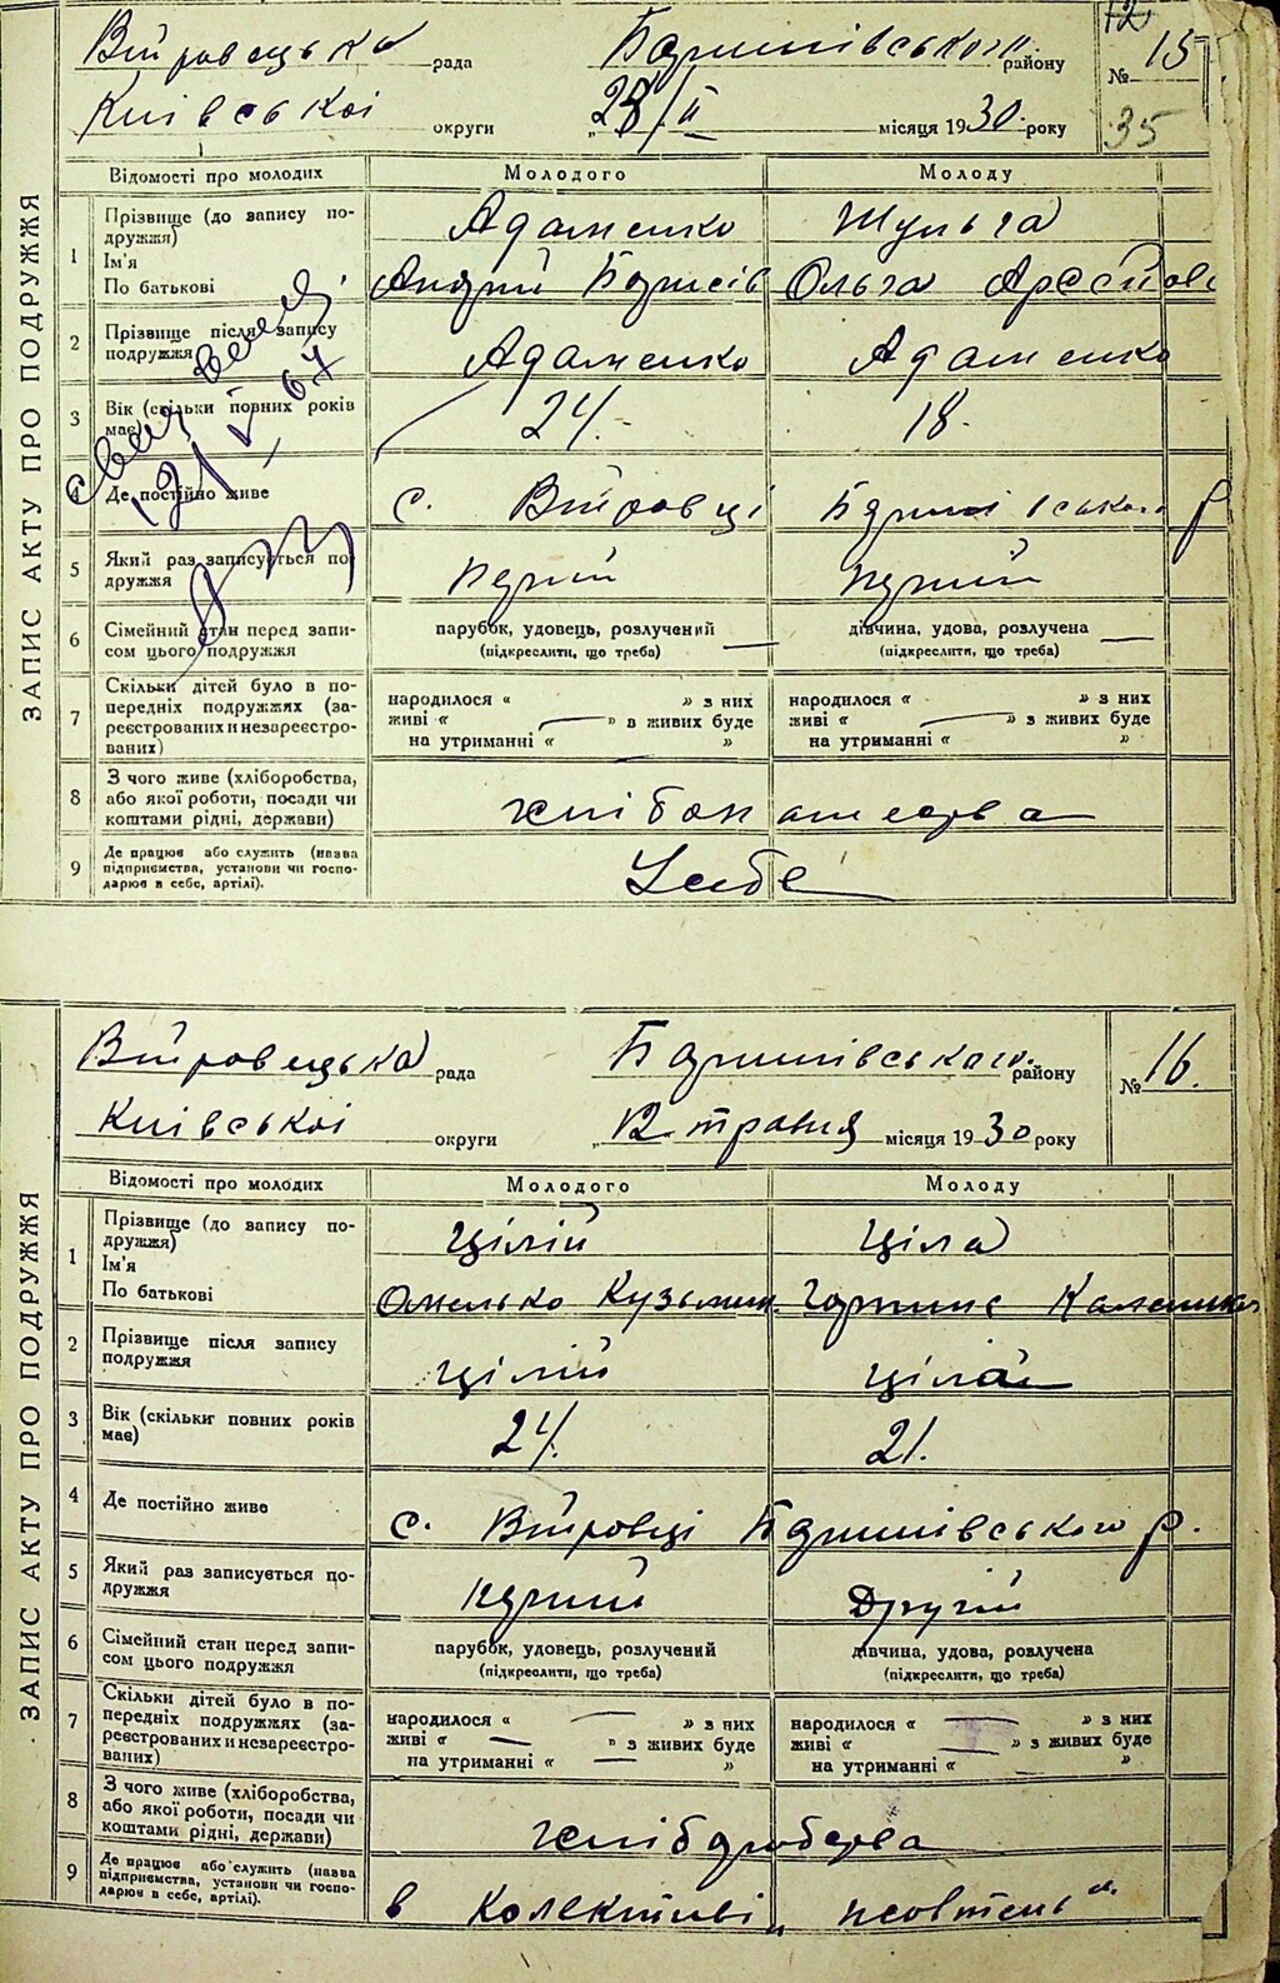 Війровецька рада Баришівського району № 15
12
Київської округи „28/II місяця 1930 року
35
ЗАПИС АКТУ ПРО ПОДРУЖЖЯ
Відомості про молодих Молодого Молоду
1 Прізвище (до запису по- Адаменко Шульга
дружжя)
Ім'я
По батькові Андрій Борисів Ольга
2 Прізвище після запису
подружжя Адаменко Адаменко
3 Вік (скільки повних років 24. 18.
має)
4 Де постійно живе с. Війровці Баришівського р
5 Який раз записується по-
дружжя перший перший
6 Сімейний стан перед запи- парубок, удовець, розлучений дівчина, удова, розлучена
сом цього подружжя (підкреслити, що треба) (підкреслити, що треба)
7 Скільки дітей було в по-
передніх подружжях (за- народилося « » з них народилося « » з них
реєстрованих и незареєстро- живі « » з живих буде живі « » з живих буде
ваних) на утриманні « » на утриманні « »
8 З чого живе (хліборобства,
або якої роботи, посади чи
коштами рідні, держави)
9 Де працює або служить (назва
підприємства, установи чи госпо- Усебе
дарює в себе, артілі).
Війровецька рада Баришівського району № 16.
Київської округи „12 травня місяця 1930 року
ЗАПИС АКТУ ПРО ПОДРУЖЖЯ
Відомості про молодих Молодого Молоду
1 Прізвище (до запису по- Цілий Ціла
дружжя)
Ім'я
По батькові Омелько Кузьмич
2 Прізвище після запису
подружжя Цілий Ціла
3 Вік (скільки повних років 24. 21.
має)
4 Де постійно живе с. Війровці Баришівського р.
5 Який раз записується по-
дружжя перший Другий
6 Сімейний стан перед запи- парубок, удовець, розлучений дівчина, удова, розлучена
сом цього подружжя (підкреслити, що треба) (підкреслити, що треба)
7 Скільки дітей було в по-
передніх подружжях (за- народилося « » з них народилося « » з них
реєстрованих и незареєстро- живі « » з живих буде живі « » з живих буде
ваних) на утриманні « » на утриманні « »
8 З чого живе (хліборобства,
або якої роботи, посади чи хліборобства
коштами рідні, держави)
9 Де працює або служить (назва
підприємства, установи чи госпо- в колективі „
дарює в себе, артілі).